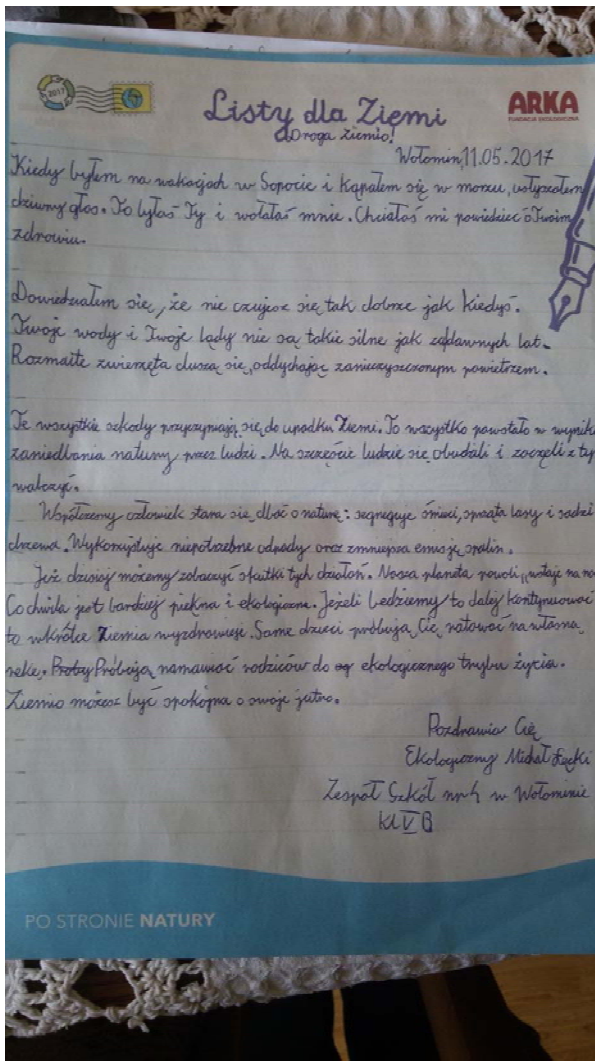 2017
ARKA
FUNDACJA EKOLOGICZNA
Listy dla Ziemi
Droga Ziemio!
Wołomin, 11.05.2017
Kiedy byłem na wakacjach w Sopocie i kąpałem się w morzu, usłyszałem
dziwny głos. To byłaś Ty i wołałaś mnie. Chciałaś mi powiedzieć o Twoim
zdrowiu.
Dowiedziałem się, że nie czujesz się tak dobrze jak kiedyś.
Twoje wody i Twoje lądy nie są takie silne jak za dawnych lat.
Rozmaite zwierzęta duszą się, oddychając zanieczyszczonym powietrzem.
Te wszystkie szkody przyczyniają się do upadku Ziemi. To wszystko powstało w wynik
zaniedbania natury przez ludzi. Na szczęście ludzie się obudzili i zaczęli z ty
walczyć.
Współczesny człowiek stara się dbać o naturę: segreguje śmieci, sprząta lasy i sadzi
drzewa. Wykorzystuje niepotrzebne odpady oraz zmniejsza emisję spalin.
Już dzisiaj możemy zobaczyć skutki tych działań. Nasza planeta powoli „wstaje na no
Co chwila jest bardziej piękna i ekologiczna. Jeżeli będziemy to dalej kontynuować
to wkrótce Ziemia wyzdrowieje. Same dzieci próbują Cię ratować na własną
rękę. Próbują namawiać rodziców do ekologicznego trybu życia.
Ziemio możesz być spokojna o swoje jutro.
Pozdrawia Cię
Ekologiczny Michał Łęcki
Zespół Szkół nr 4 w Wołominie
kl V B
PO STRONIE NATURY